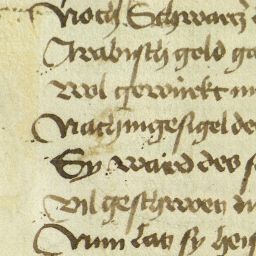 Noch Schwarcz
Arabisch geld
Wol gewürckt
Nach ingesigel de
Sy ward des
Vil geschwen
Nun lat sy